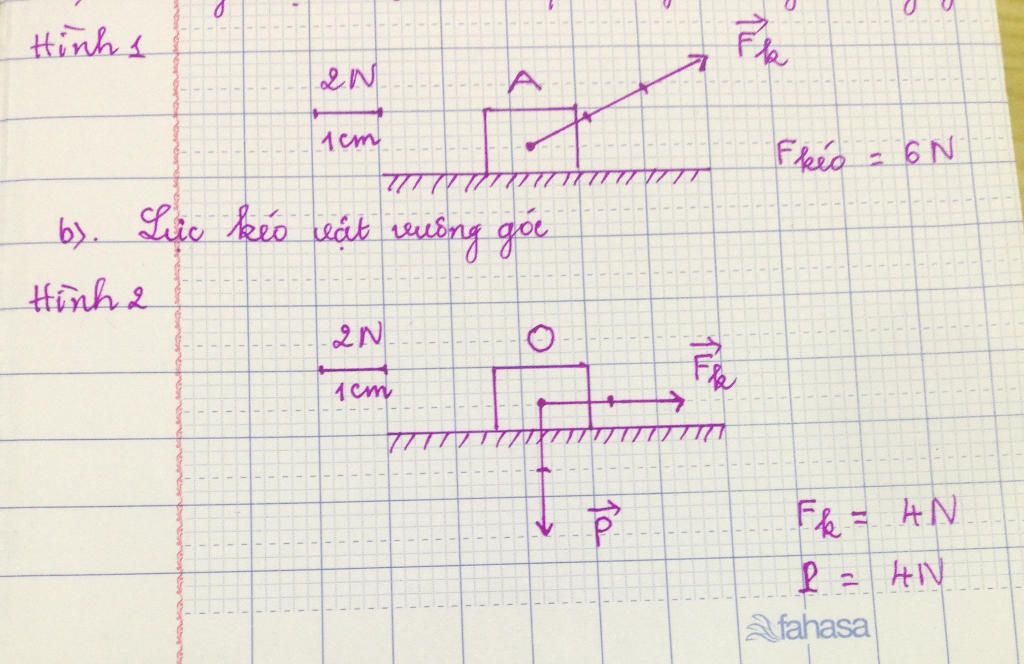 Hình 1
2N
1cm
A
F→k
Fkéo = 6N
b). Lực kéo vật vuông góc
Hình 2
2N
1cm
O
F→k
P→
Fk = 4N
P = 4N
fahasa